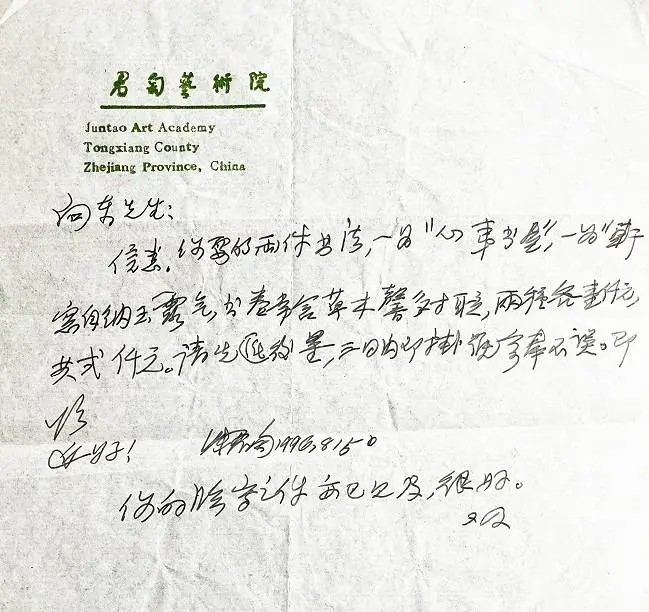 君匋藝術院
Juntao Art Academy
Tongxiang County
Zhejiang Province, China
向东先生:
信悉。你要的两件书法,一为"心事"一为"
窗自纳玉露气,书卷常含草木馨"对联,两种各壹仟元,
共弍仟元。请先汇款,三日内即挂号寄奉不误。即
颂
近好!
钱君匋1996.8.15。
你的字之件亦已见及,很好。
又及